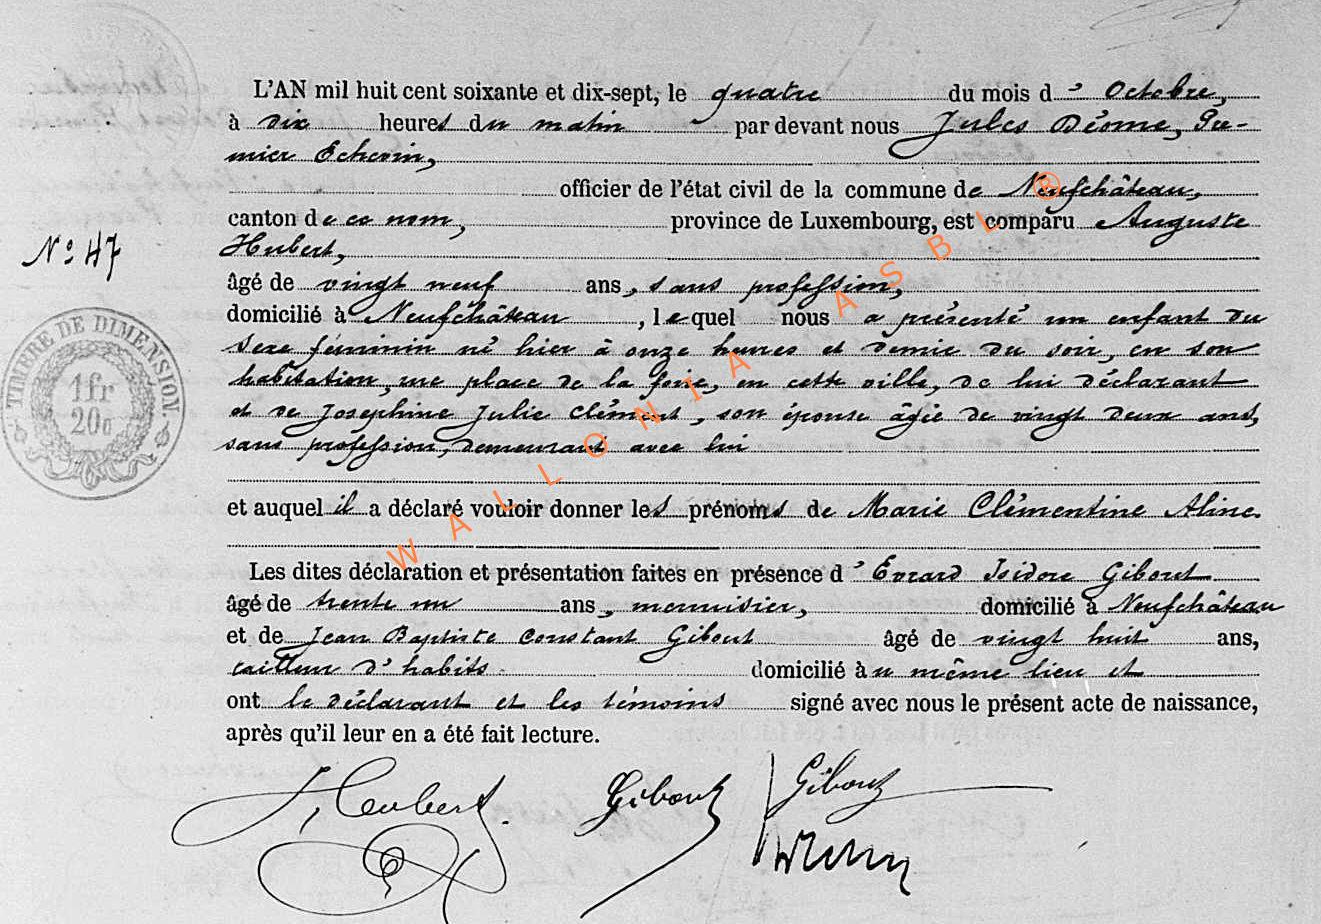 L'AN mil huit cent soixante et dix-sept, le quatre du mois d' Octobre,
à dix heures du matin par devant nous Jules Déome, Pre-
mier Echevin,
officier de l'état civil de la commune de Neufchâteau,
canton de ce nom, province de Luxembourg, est comparu Auguste
Hubert,
N° 47
âgé de vingt neuf ans, sans profession,
domicilié à Neufchâteau, lequel nous a présenté un enfant du
sexe féminin né hier à onze heures et demie du soir, en son
habitation, une place de la foire, en cette ville, de lui déclarant
et de Joséphine Julie Clément, son épouse âgée de vingt deux ans,
sans profession, demeurant avec lui
et auquel il a déclaré vouloir donner les prénoms de Marie Clémentine Aline.
Les dites déclaration et présentation faites en présence d' Evrard Isidore Gibout
âgé de trente un ans, menuisier, domicilié à Neufchâteau
et de Jean Baptiste Constant Gibout âgé de vingt huit ans,
tailleur d'habits domicilié au même lieu et
ont le déclarant et les témoins signé avec nous le présent acte de naissance,
après qu'il leur en a été fait lecture.
TIMBRE DE DIMENSION.
1fr
20c
WALLONIA ASBL ®
Hubert. Gibout Gibout